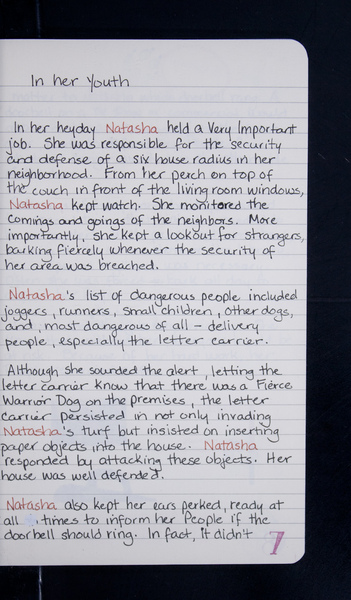 In her Youth
In her heyday Natasha held a Very Important
job. She was responsible for the security
and defense of a six house radius in her
neighborhood. From her perch on top of
the couch in front of the living room windows,
Natasha kept watch. She monitored the
comings and goings of the neighbors. More
importantly, she kept a lookout for strangers,
barking fiercely whenever the security of
her area was breached.
Natasha's list of dangerous people included
joggers, runners, small children, other dogs,
and, most dangerous of all - delivery
people, especially the letter carrier.
Although she sounded the alert, letting the
letter carrier know that there was a Fierce
Warrior Dog on the premises, the letter
carrier persisted in not only invading
Natasha's turf but insisted on inserting
paper objects into the house. Natasha
responded by attacking these objects. Her
house was well defended.
Natasha also kept her ears perked, ready at
all times to inform her People if the
doorbell should ring. In fact, it didn't
7